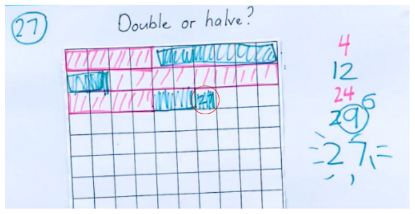 27
Double or halve?
27
4
12
24
29 6
=27,=